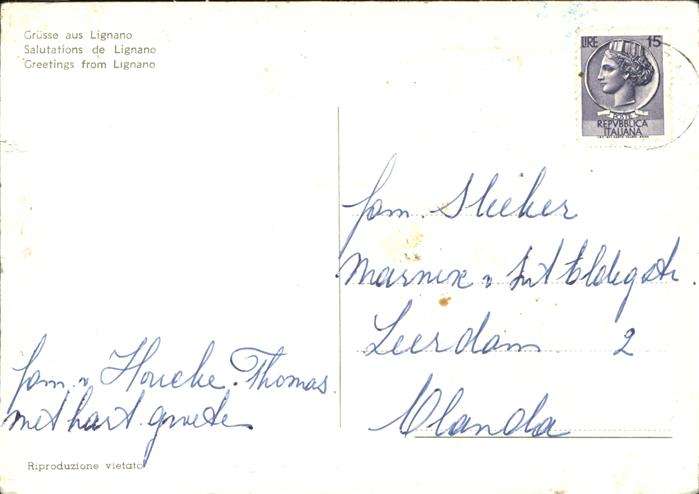 Grüsse aus Lignano
Salutations de Lignano
Greetings from Lignano
LIRE 15
POSTE
REPVBBLICA
ITALIANA
fam. Slieker
Marnix v
Leerdam 2
Olanda
fam v Houcke. Thomas
met hart. groeten
Riproduzione vietato